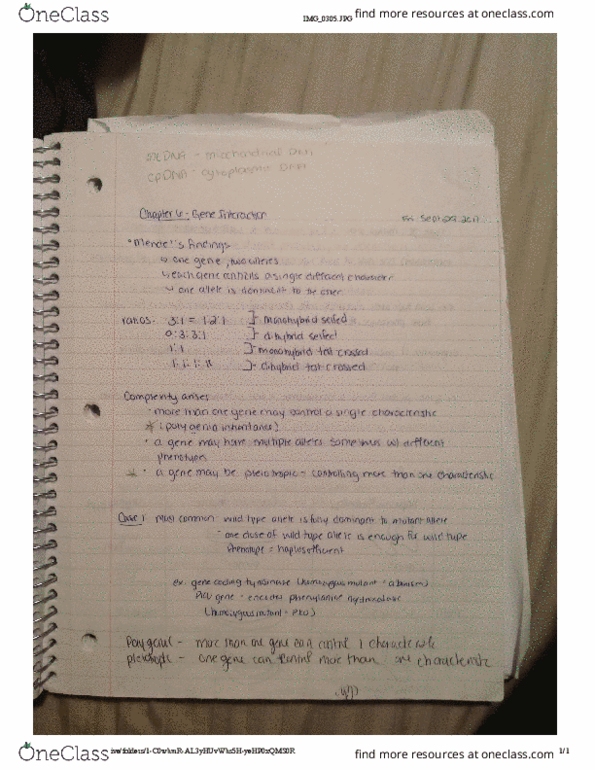 OneClass
IMG_0305.JPG
find more resources at oneclass.com
mtDNA - mitochondrial DNA
cpDNA - cytoplasmic DNA
Chapter 6 - Gene Interaction
Mendel's findings
one gene, two alleles
each gene controls a single different character
one allele is dominant to the other
ratios: 3:1 = 1:2:1 ]- monohybrid selfed
9:3:3:1 ]- dihybrid selfed
1:1 ]- monohybrid test crossed
1:1:1:1 ]- dihybrid test crossed
Complexity arises
· more than one gene may control a single characteristic
* (polygenic inheritance)
· a gene may have multiple alleles sometimes w/ different
phenotypes
* · a gene may be pleiotropic - controlling more than one characteristic
Case 1: most common: wild type allele is fully dominant to mutant allele
· one dose of wild type allele is enough for wild type
phenotype = haplosufficient
ex. gene coding tyrosinase (homozygous mutant - albinism)
PKU gene - encodes phenylalanine hydroxylase
(homozygous mutant - PKU)
Polygenic - more than one gene can control 1 characteristic
pleiotropic - one gene can control more than one characteristic
OneClass
find more resources at oneclass.com
1/1